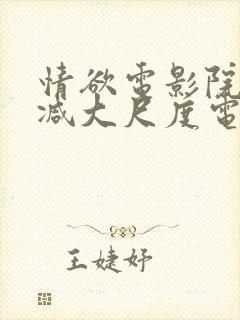 情欲電影院
减大尺度電
王婕妤